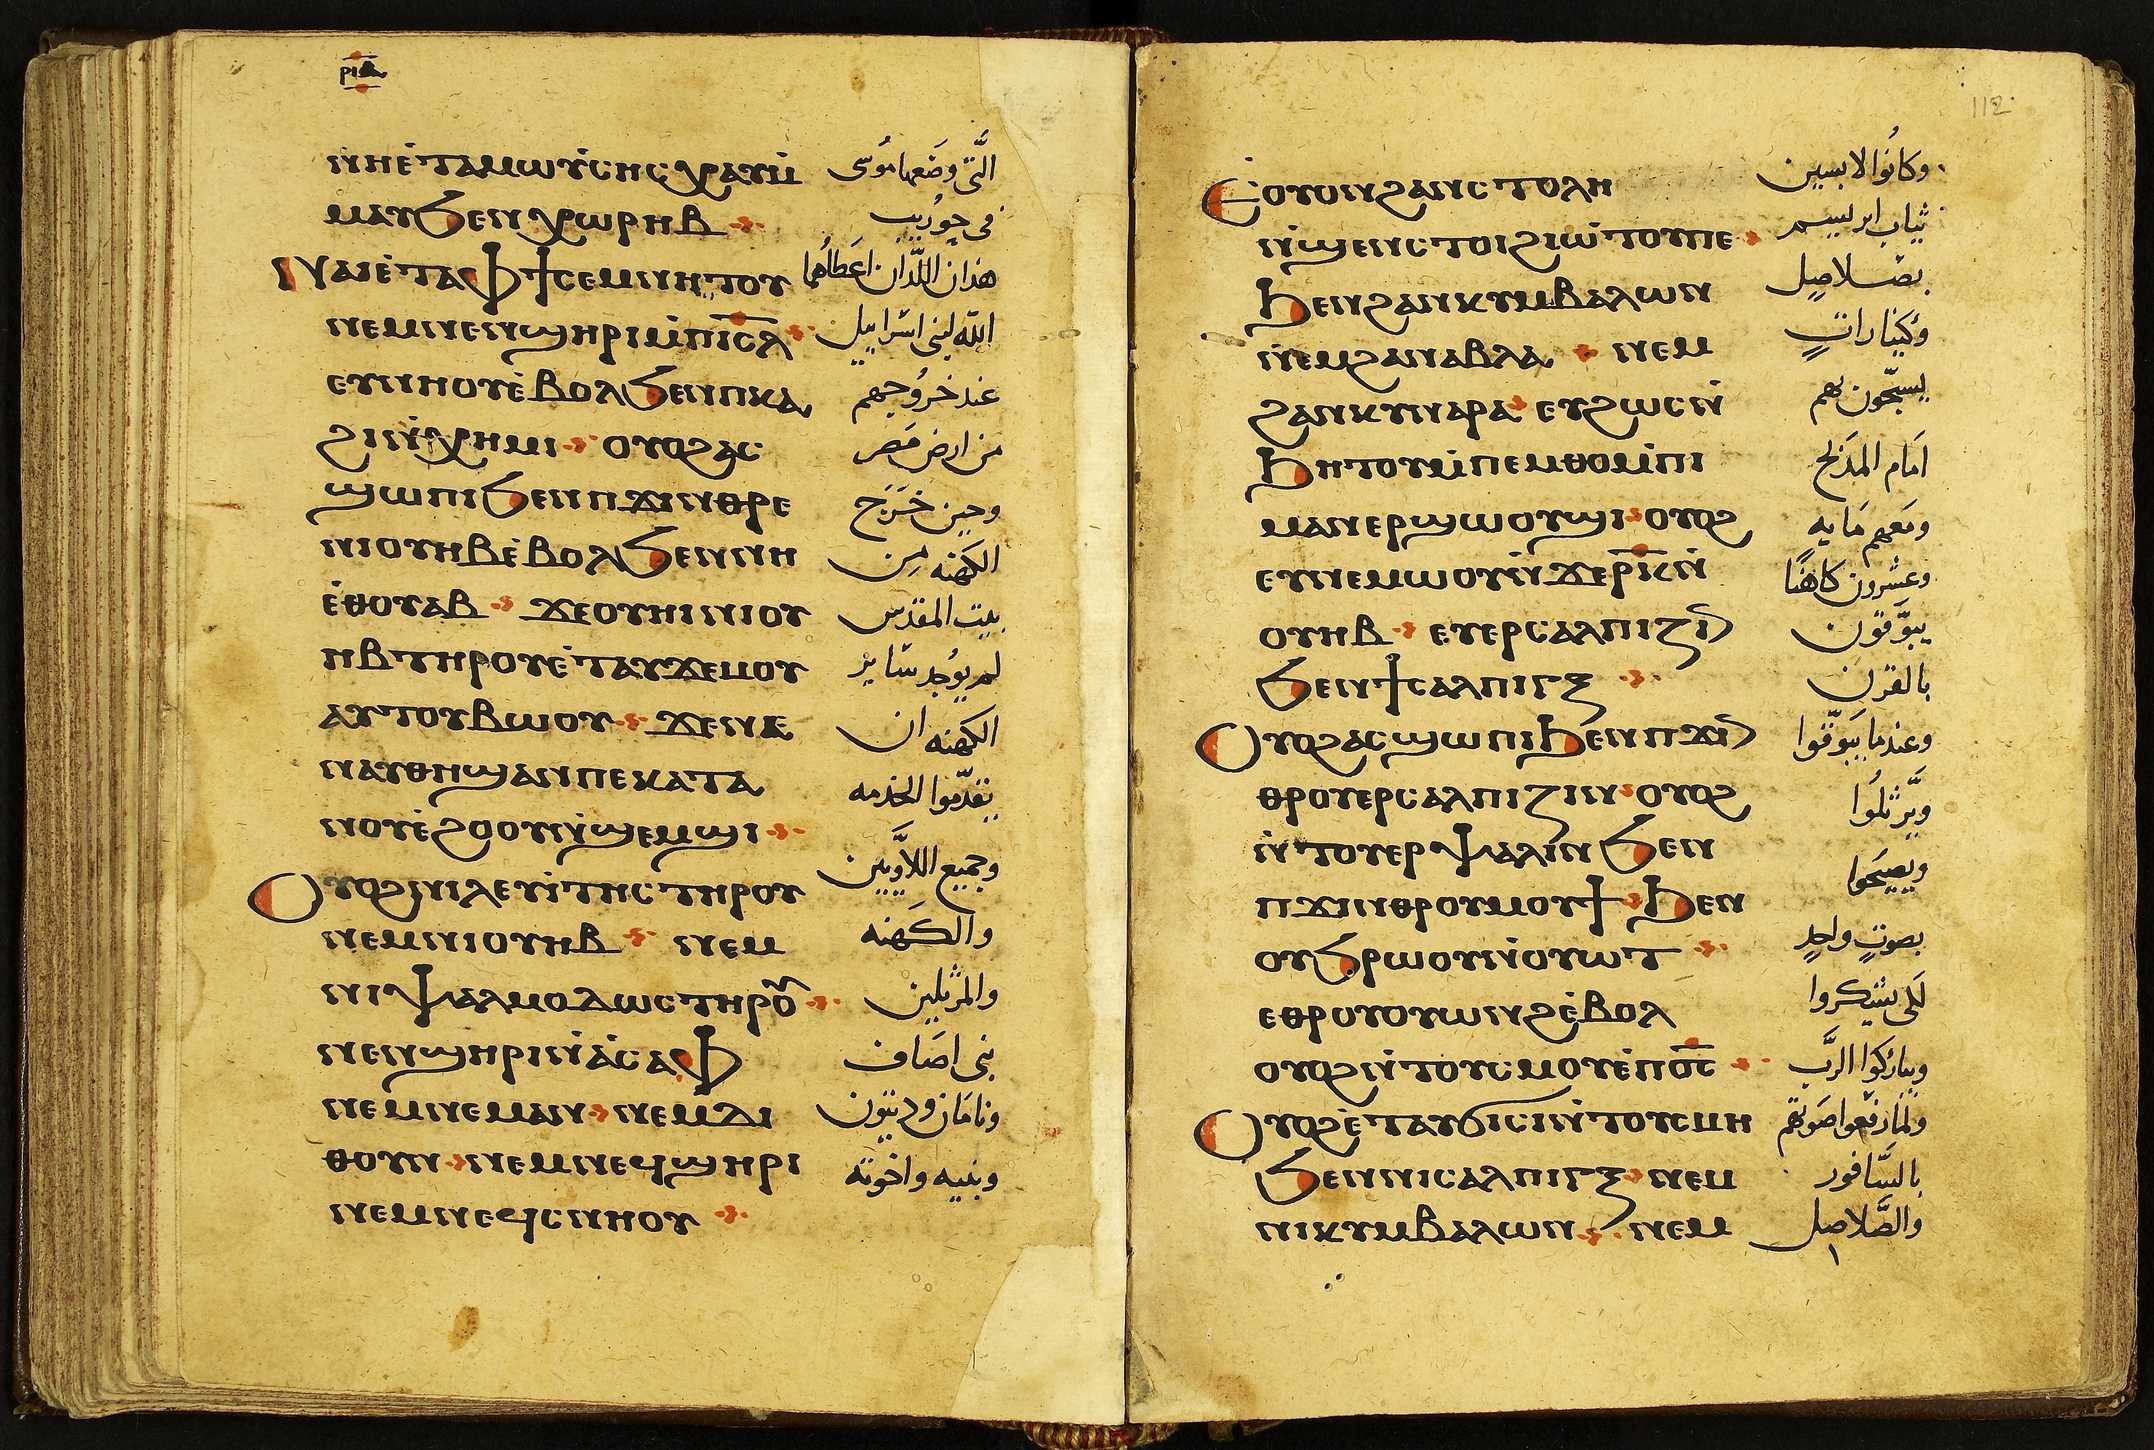 ⲣⲓⲁ
ⲛⲏⲉ̀ⲧⲁⲙⲱⲩ̀ⲥⲏⲥ ⲭⲁⲩⲙ̀
ⲙⲁⲩ ϧⲉⲛ ⲭⲱⲣⲏⲃ
ⲛⲁⲓⲉ̀ⲧⲁⲫϯⲥⲉⲙⲛⲏⲧⲟⲩ
ⲛⲉⲙⲛⲉⲛϣⲏⲣⲓⲙ̀ⲡⲓⲥ̅ⲗ̅
ⲉⲩⲛⲏⲟⲩⲉ̀ⲃⲟⲗϧⲉⲛⲡⲕⲁ
ϩⲓⲛ̀ⲭⲏⲙⲓ ⲟⲩⲟϩⲁⲥ
ϣⲱⲡⲓϧⲉⲛⲡϫⲓⲛⲑⲣⲉ
ⲛⲓⲟⲩⲏⲃⲉ̀ⲃⲟⲗϧⲉⲛⲛⲏ
ⲉ̀ⲑⲟⲩⲁⲃ ϫⲉⲟⲩⲏⲓⲛⲓⲟⲩ
ⲏⲃⲧⲏⲣⲟⲩⲉ̀ⲧⲁⲩϫⲉⲙⲟⲩ
ⲁⲩⲧⲟⲩⲃⲱⲟⲩ ϫⲉⲛⲉ
ⲛⲁⲩⲑⲏϣⲁⲛⲡⲉⲕⲁⲧⲁ
ⲛⲟⲩⲉ̀ϩⲟⲟⲩⲛ̀ϣⲉⲙϣⲓ
ⲟⲩⲟϩⲛⲓⲗⲉⲩⲓ̀ⲧⲏⲥⲧⲏⲣⲟⲩ
ⲛⲉⲙⲛⲓⲟⲩⲏⲃ ⲛⲉⲙ
ⲛⲓⲯⲁⲗⲙⲟⲇⲱⲥⲧⲏⲣⲟⲩ
ⲛⲉⲛϣⲏⲣⲓⲛ̀ⲁ̀ⲥⲁⲫ
ⲛⲉⲙⲛⲉⲙⲁⲛ ⲛⲉⲙⲇⲓ
ⲑⲟⲩⲛ ⲛⲉⲙⲛⲉϥϣⲏⲣⲓ
ⲛⲉⲙⲛⲉϥⲥⲛⲏⲟⲩ
الَّتى وضَعها مُوسى
فى حوُريب
هذان اللَّذان اعَطاهُما
الله لبنى اسَراييل
عند خروُجهم
من ارض مَصر
وحين خَرَج
الكهنه مِن
بيت المقدس
لم يوُجد سَاير
الكهنه ان
يتقدّموا للخدمه
وجميع اللاَّويين
والكَهنه
والمرتلين
بنى اصَاف
ونامَان وديثون
وبنيه واخوته
112
ⲉⲟⲩⲟⲛϩⲁⲛⲥⲧⲟⲗⲏ
ⲛ̀ϣⲉⲛⲥⲧⲟⲓϩⲓⲱ̀ⲧⲟⲩⲡⲉ
ϧⲉⲛϩⲁⲛⲕⲩⲙⲃⲁⲗⲱⲛ
ⲛⲉⲙϩⲁⲛⲁⲃⲗⲁ ⲛⲉⲙ
ϩⲁⲛⲕⲩⲛⲁⲣⲁ ⲉⲩϩⲱⲥⲛ̀
ϧⲏⲧⲟⲩⲙ̀ⲡⲉⲙⲑⲟⲙ̀ⲡⲓ
ⲙⲁⲛⲉⲣϣⲱⲟⲩϣⲓ ⲟⲩⲟϩ
ⲉⲩⲛⲉⲙⲱⲟⲩⲛ̀ϫⲉⲣ̅ⲕ̅ⲛ̀
ⲟⲩⲏⲃ ⲉⲩⲉⲣⲥⲁⲗⲡⲓⲍⲓⲛ
ϧⲉⲛϯⲥⲁⲗⲡⲓⲅⲝ
ⲟⲩⲟϩⲁⲥϣⲱⲡⲓϧⲉⲛⲡϫⲓⲛ
ⲑⲣⲟⲩⲉⲣⲥⲁⲗⲡⲓⲍⲓⲛ ⲟⲩⲟϩ
ⲛ̀ⲧⲟⲩⲉⲣⲯⲁⲗⲓⲛ ϧⲉⲛ
ⲡϫⲓⲛⲑⲣⲟⲩⲙⲟⲩϯ ϧⲉⲛ
ⲟⲩϧⲣⲱⲟⲩⲛ̀ⲟⲩⲱⲧ
ⲉⲑⲣⲟⲩⲟⲩⲱⲛϩⲉ̀ⲃⲟⲗ
ⲟⲩⲟϩⲛ̀ⲧⲟⲩⲥⲙⲟⲩⲉ̀ⲡⲟ̅ⲥ̅
ⲟⲩⲟϩⲉ̀ⲧⲁⲩϭⲓⲥⲓⲛ̀ⲧⲟⲩⲥⲙⲏ
ϧⲉⲛⲛⲓⲥⲁⲗⲡⲓⲅⲝ ⲛⲉⲙ
ⲛⲓⲕⲩⲙⲃⲁⲗⲱⲛ ⲛⲉⲙ
وكانوُا لابسين
ثياب ابريسم
بصَلاصِل
وكينارات
يسبّحون بهم
اَمَام المَذبح
ومعَهم مَايه
وعشرون كاهنًا
يبوّقون
بالقرن
وعندما يبَوّقوا
ويَرتلُوا
ويصيحَوا
بصوتٍ واحدٍ
لكى يشكروا
ويباركوا الرَّب
ولما رفعوا اصَواتهم
بالسَّافور
والصَّلاصِل